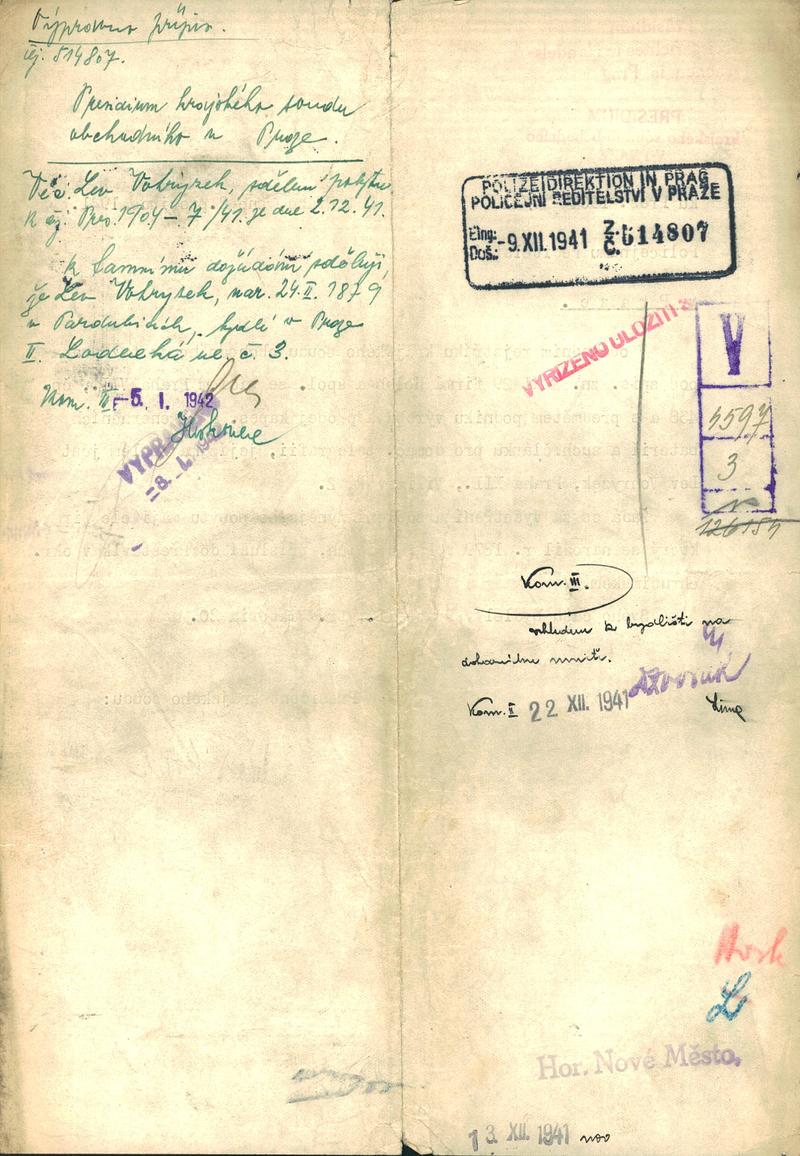 Výpravna přípis.
čj. 514807.
Presidium krajského soudu
obchodního v Praze.
Věc. Lev Vohryzek, sdělení pobytu.
K čj. Pres. 1904 – 7/41. ze dne 2.12.41.
K tamnímu dožádání sděluji,
že Lev Vohryzek, nar. 24.II. 1879
v Pardubicích, bydlí v Praze
II. Lodecká ul. č 3.
Kom. II -5. I. 1942
VYPRAVENO
-8. I. 1942
POLIZEIDIREKTION IN PRAG
POLICEJNÍ ŘEDITELSTVÍ V PRAZE
Eing:
Doš.: -9.XII.1941 Z. Č. 514807
VYŘÍZENO ULOŽITI
V
4597
3
126154
Kom. III.
vzhledem k bydlišti na
Dvořák
Kom. II 22 XII. 1941
Hor. Nové Město.
13. XII. 1941